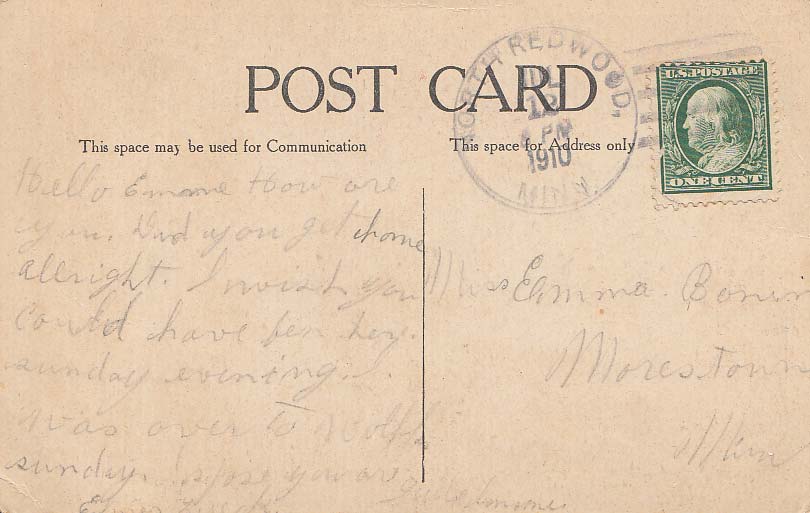 POST CARD
This space may be used for Communication
This space for Address only
NORTH REDWOOD,
1910
MINN.
U.S. POSTAGE
ONE CENT
Hello Emma How are
you. Did you get home
allright. I wish you
could have ben her
sunday evening. I
was over to
sunday. I spose you are
Miss Emma
Morestown
Minn